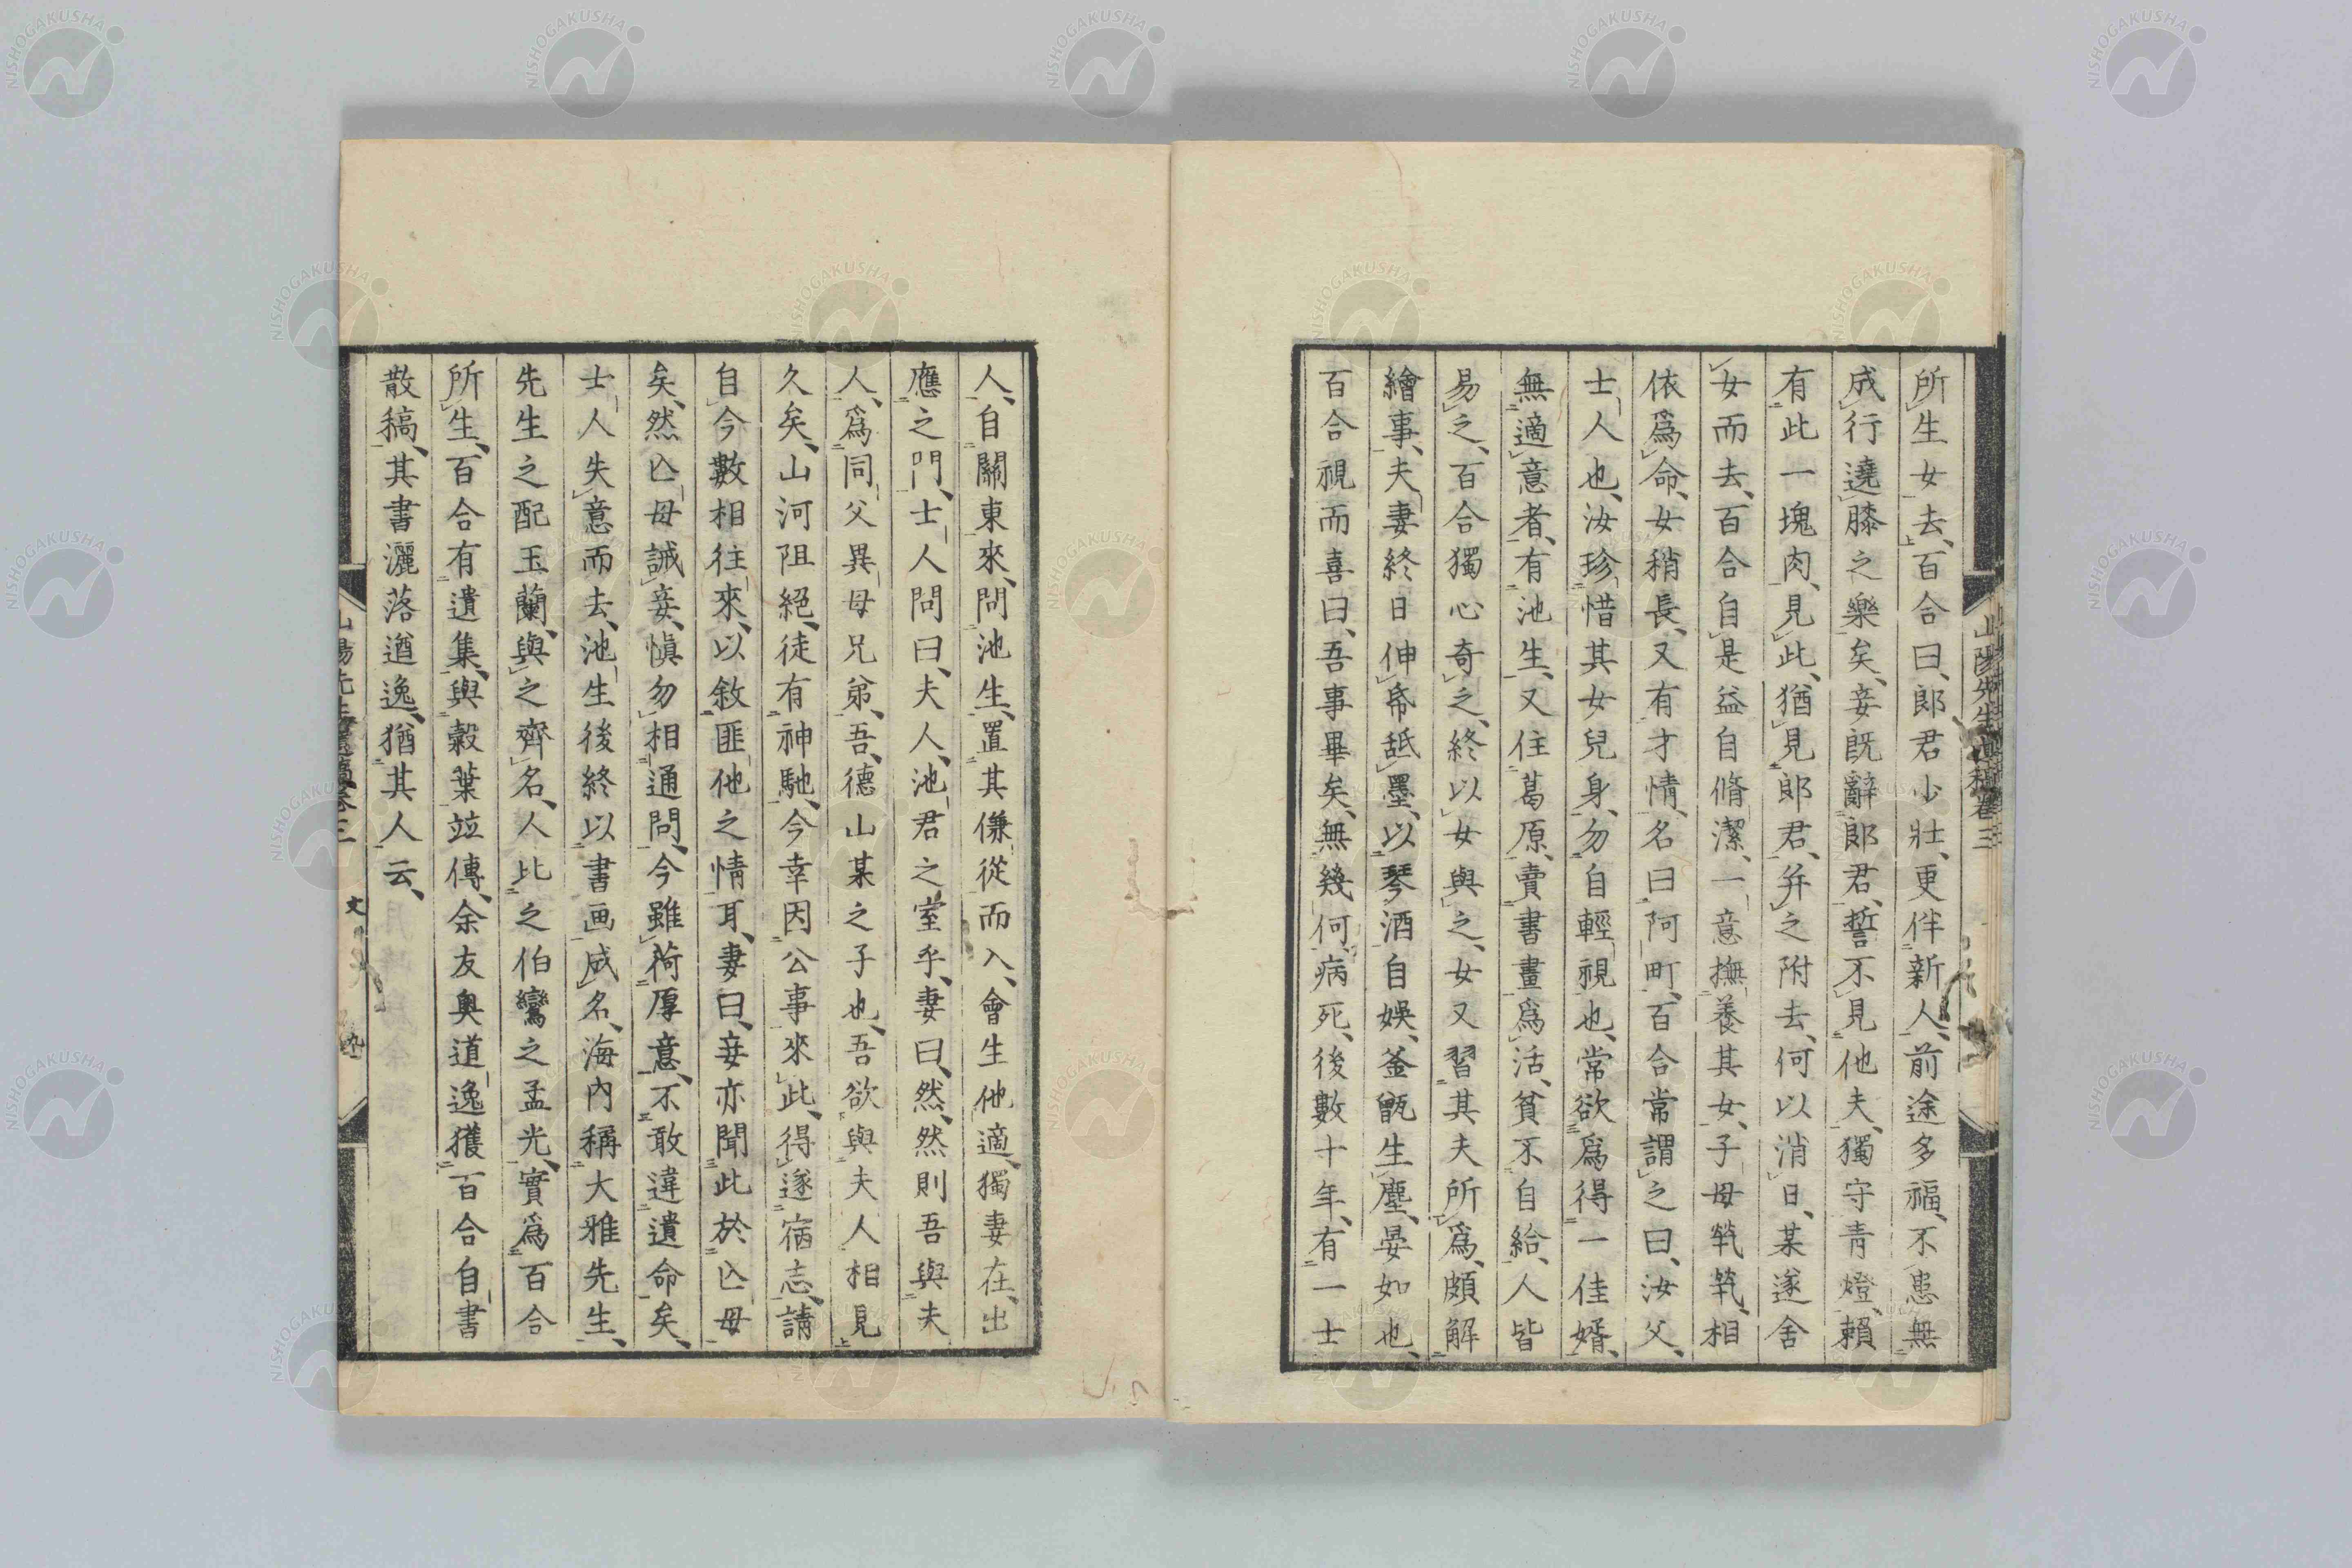 山陽先生遺稿卷三
所生女去、百合曰、郎君少壯、更伴新人、前途多福、不患無
成行遶膝之樂矣、妾既辭郎君、誓不見他夫、獨守靑燈、賴
有此一塊肉、見此、猶見郎君、并之附去、何以消日、某遂舍
女而去、百合自是益自脩潔、一意撫養其女、子母煢煢、相
依爲命、女稍長、又有才情、名曰阿町、百合常謂之曰、汝父、
士人也、汝珍惜其女兒身、勿自輕視也、常欲爲得一佳婿、
無適意者、有池生、又住葛原、賣書畫爲活、貧不自給、人皆
易之、百合獨心奇之、終以女與之、女又習其夫所爲、頗解
繪事、夫妻終日伸帋舐墨、以琴酒自娯、釜甑生塵、晏如也、
百合視而喜曰、吾事畢矣、無幾何、病死、後數十年、有一士
人、自關東來、問池生、置其傔從而入、會生他適、獨妻在、出
應之門、士人問曰、夫人、池君之室乎、妻曰、然、然則吾與夫
人、爲同父異母兄弟、吾、德山某之子也、吾欲與夫人相見
久矣、山河阻絕、徒有神馳、今幸因公事來此、得遂宿志、請
自今數相往來、以敘匪他之情耳、妻曰、妾亦聞此於亾母
矣、然亾母誡妾、愼勿相通問、今雖荷厚意、不敢違遺命矣、
士人失意而去、池生後終以書画成名、海內稱大雅先生、
先生之配玉蘭、與之齊名、人比之伯鸞之孟光、實爲百合
所生、百合有遺集、與穀葉竝傳、余友奥道逸獲百合自書
散稿、其書灑落遒逸、猶其人云、
山陽先生遺稿卷三 文 九
NISHOGAKUSHA